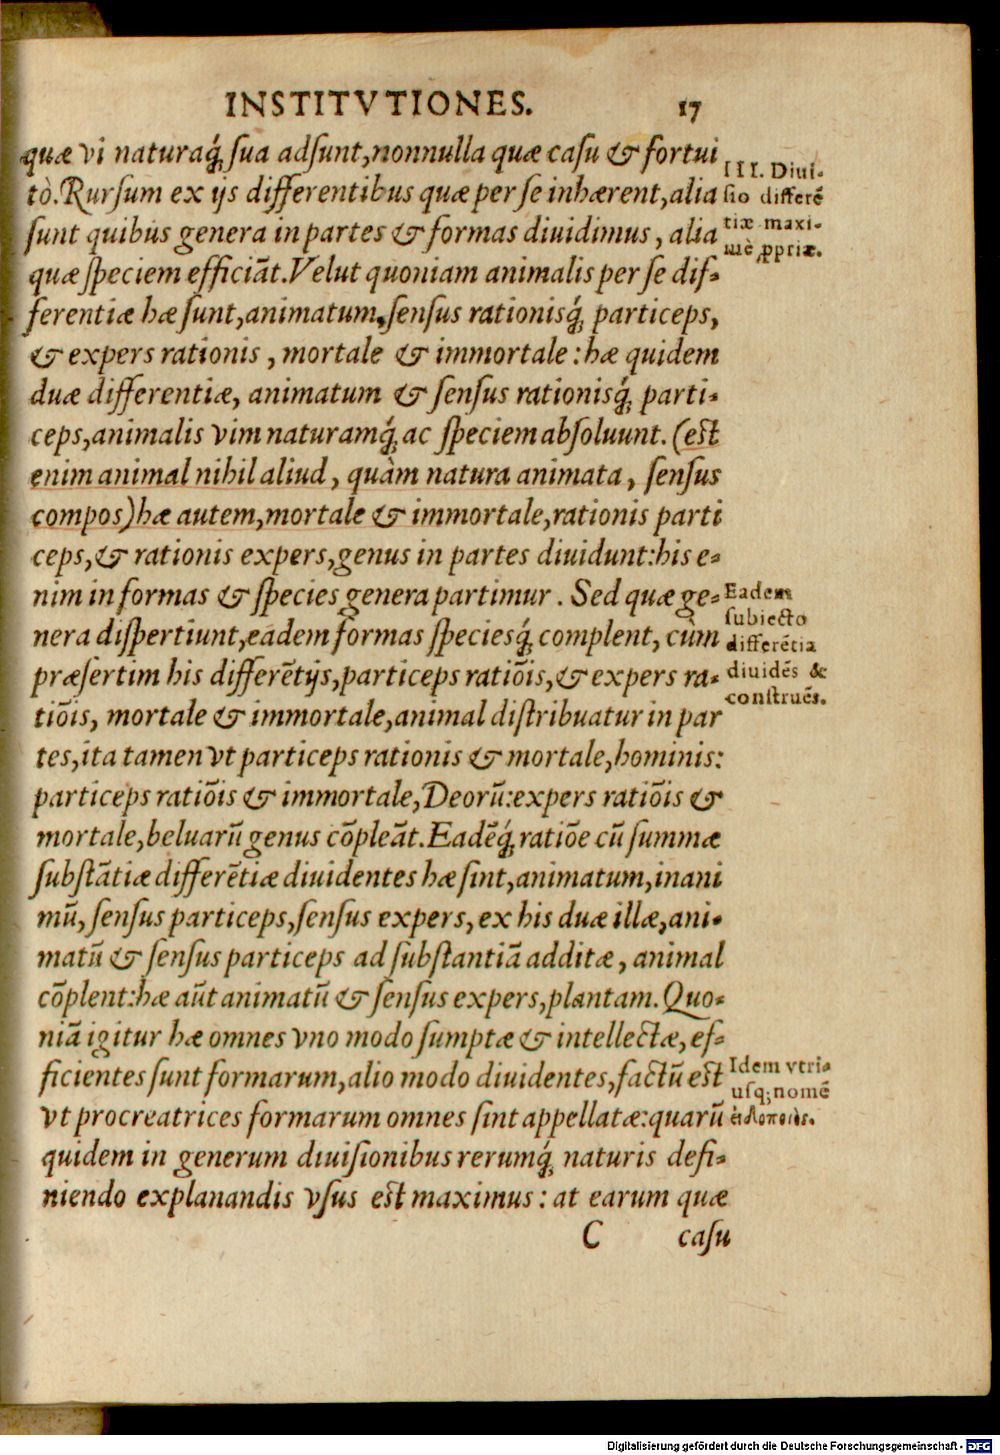 INSTITVTIONES. 17
quæ vi naturaq́; sua adsunt, nonnulla quæ casu & fortui
tò. Rursum ex ijs differentibus quæ per se inhærent, alia
sunt quibus genera in partes & formas diuidimus, alia
quæ speciem efficiāt. Velut quoniam animalis per se dif-
ferentiæ hæ sunt, animatum, sensus rationisq́; particeps,
& expers rationis, mortale & immortale: hæ quidem
duæ differentiæ, animatum & sensus rationisq́; parti-
ceps, animalis vim naturamq́; ac speciem absoluunt. (est
enim animal nihil aliud, quàm natura animata, sensus
compos) hæ autem, mortale & immortale, rationis parti
ceps, & rationis expers, genus in partes diuidunt: his e-
nim in formas & species genera partimur. Sed quæ ge-
nera dispertiunt, eadem formas speciesq́; complent, cùm
præsertim his differētijs, particeps ratiōis, & expers ra-
tiōis, mortale & immortale, animal distribuatur in par
tes, ita tamen vt particeps rationis & mortale, hominis:
particeps ratiōis & immortale, Deorū: expers ratiōis &
mortale, beluarū genus cōpleāt. Eadēq́; ratiōe cū summæ
substātiæ differētiæ diuidentes hæ sint, animatum, inani
mū, sensus particeps, sensus expers, ex his duæ illæ, ani-
matū & sensus particeps ad substantiā additæ, animal
cōplent: hæ aūt animatū & sensus expers, plantam. Quo-
niā igitur hæ omnes vno modo sumptæ & intellectæ, ef-
ficientes sunt formarum, alio modo diuidentes, factū est
vt procreatrices formarum omnes sint appellatæ: quarū
quidem in generum diuisionibus rerumq́; naturis defi-
niendo explanandis vsus est maximus: at earum quæ
C casu
III. Diui-
sio differē
tiæ maxi-
mè ꝓpriæ.
Eadem
subiecto
differētia
diuidēs &
construēs.
Idem vtri-
usq; nomē
εἰδοποιὸς.
Digitalisierung gefördert durch die Deutsche Forschungsgemeinschaft - DFG